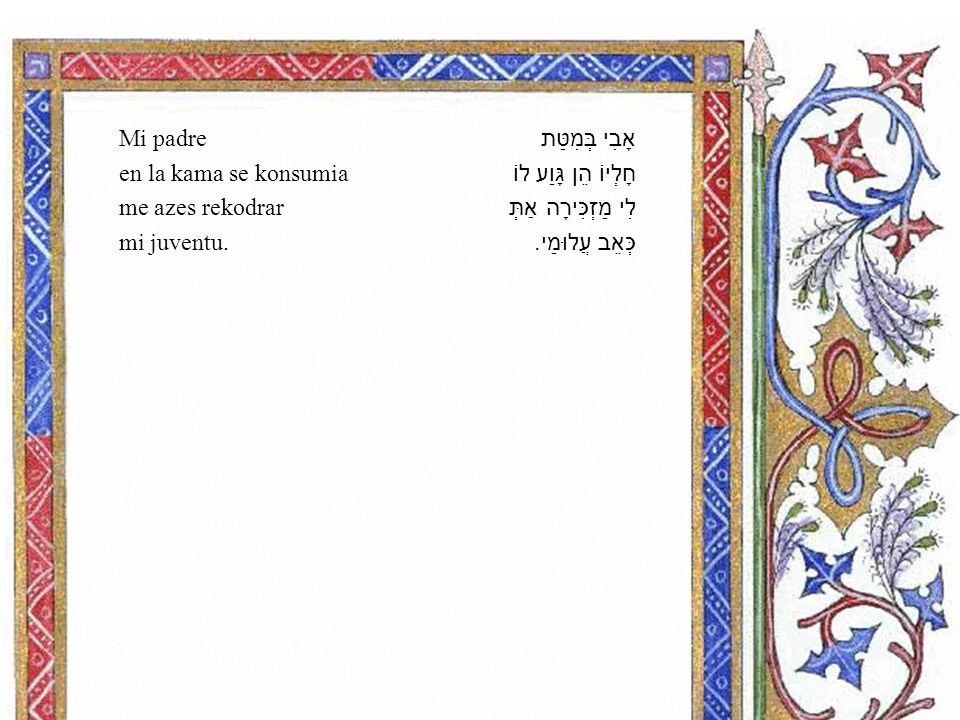 Mi padre
en la kama se konsumia
me azes rekodrar
mi juventu.
אָבִי בְּמִטַּת
חָלְיוֹ הֵן גָּוַע לוֹ
לִי מַזְכִּירָה אַתְּ
כְּאֵב עֲלוּמַי.